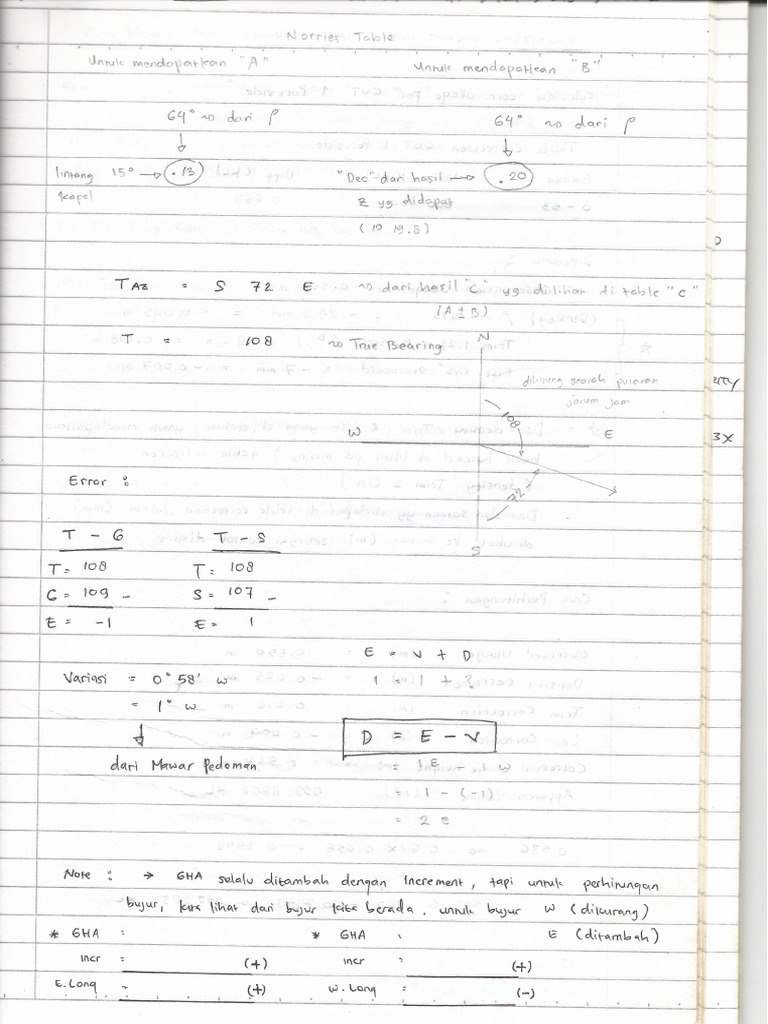 Norries Table
Untuk mendapatkan "A"
Untuk mendapatkan "B"
64° ~> dari P
64° ~> dari P
↓
↓
lintang kapal 15° → .13
"Dec" dari hasil → .20
z yg didapat
(10 19.8)
TAz = S 72 E ~> dari hasil "C" yg dilihat di table "C"
(A ± B)
T = 108 ~> True Bearing
N
dihitung searah putaran
jarum jam
108
W
E
72
S
Error :
T - G
T - S
T = 108
T = 108
G = 109 -
S = 107 -
E = -1
E = 1
E = V + D
Variasi = 0° 58' W
1 = 1 + ?
= 1° W
↓
D = E - V
dari Mawar Pedoman
= 1 E - 1 W
= 1 - (-1)
= 2 E
Note : → GHA selalu ditambah dengan Increment, tapi untuk perhitungan
bujur, kita lihat dari bujur kita berada. untuk bujur W (dikurang)
E (ditambah)
* GHA :
* GHA :
incr = (+)
incr = (+)
E. Long = (+)
W. Long = (-)
D
3X